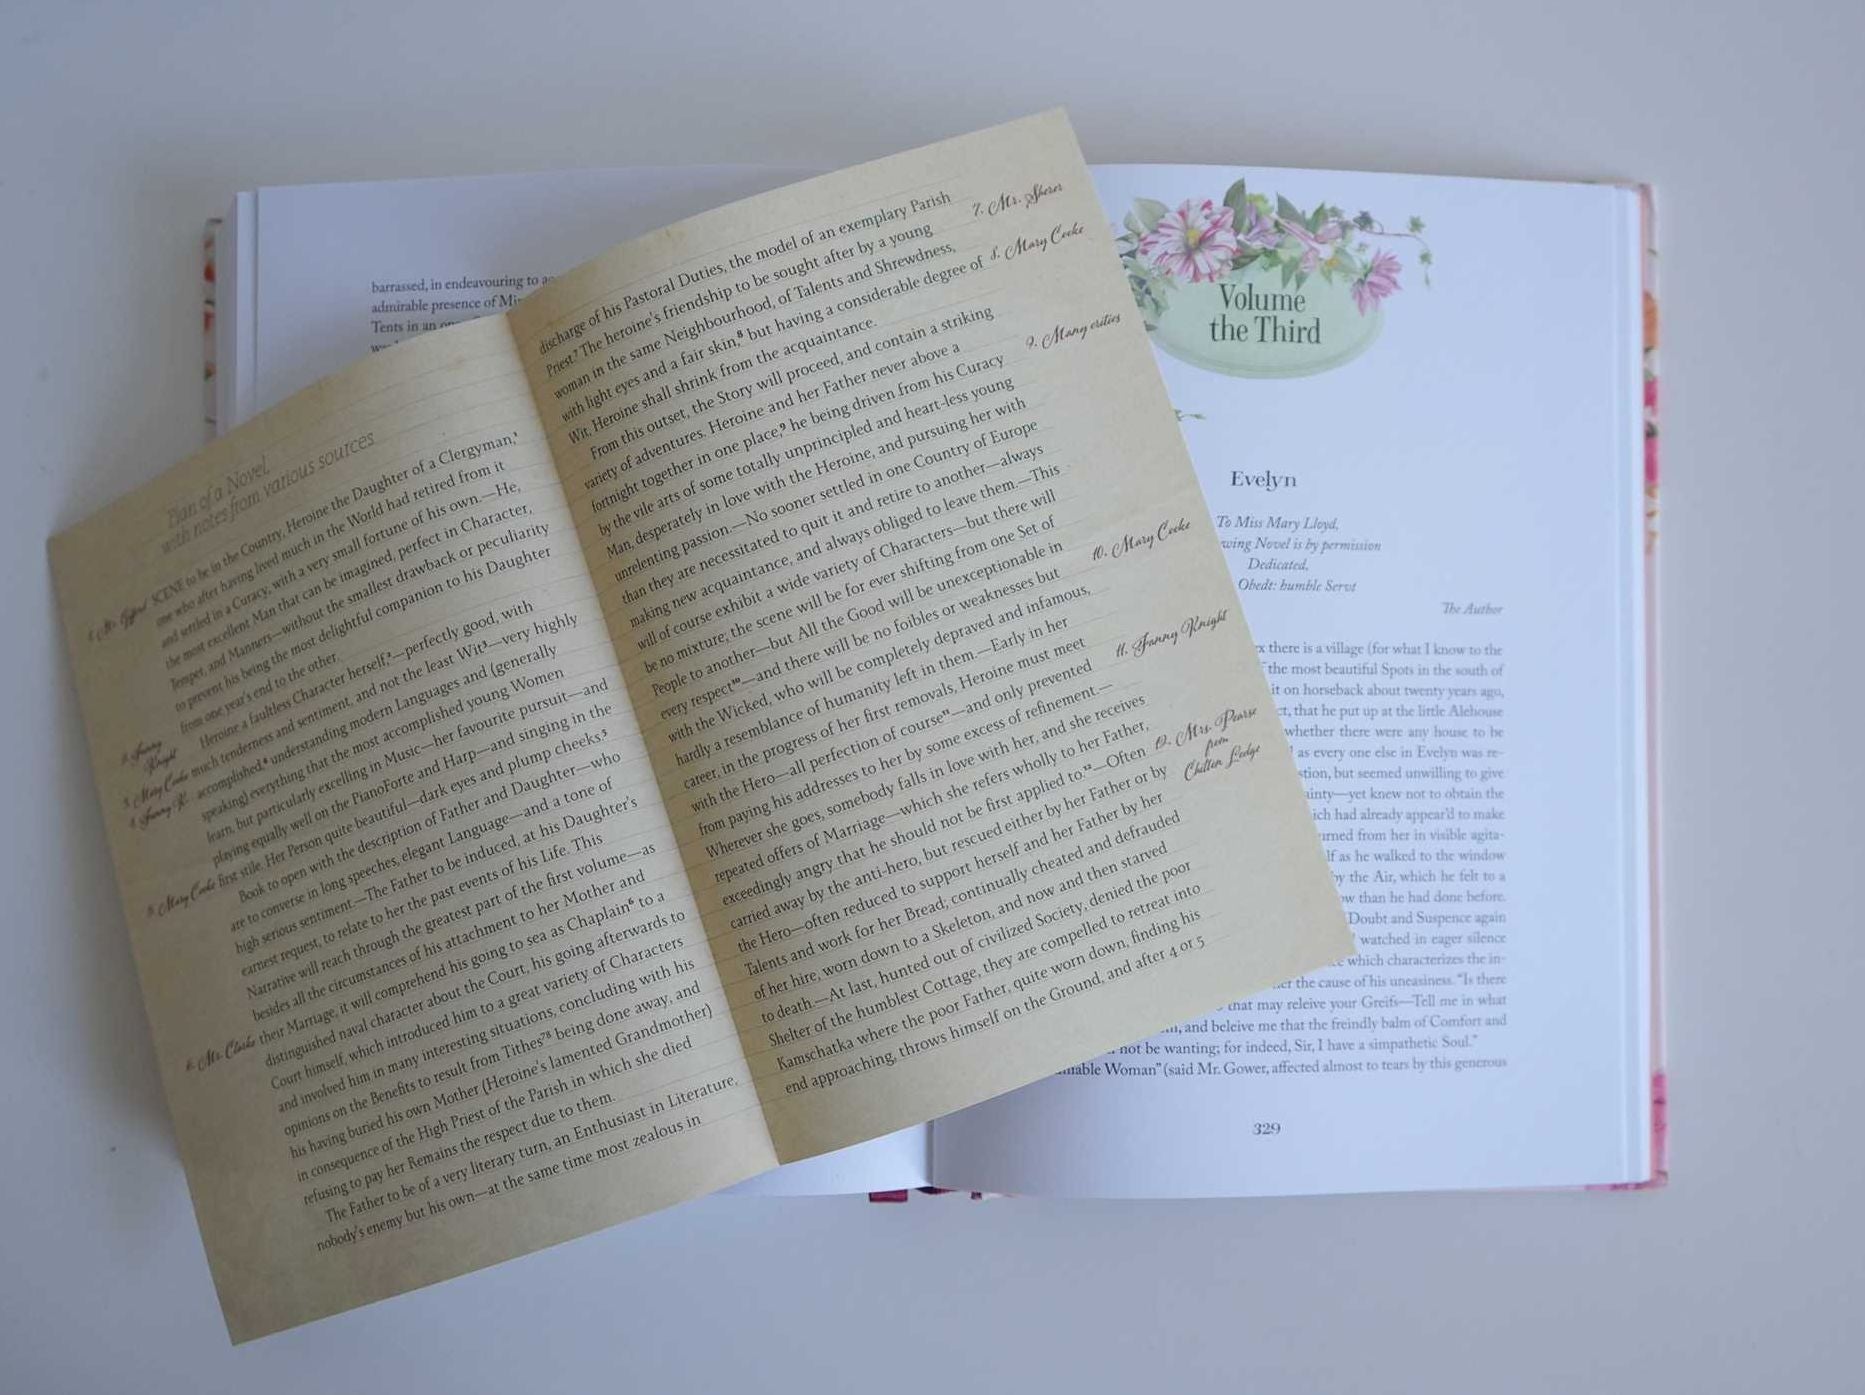 barrassed, in endeavouring to
admirable presence of
Tents in an
Plan of a Novel,
with notes from various sources
SCENE to be in the Country, Heroine the Daughter of a Clergyman,¹
one who after having lived much in the World had retired from it
and settled in a Curacy, with a very small fortune of his own.—He,
the most excellent Man that can be imagined, perfect in Character,
Temper, and Manners—without the smallest drawback or peculiarity
to prevent his being the most delightful companion to his Daughter
from one year's end to the other.
Heroine a faultless Character herself,²—perfectly good, with
much tenderness and sentiment, and not the least Wit³—very highly
accomplished,⁴ understanding modern Languages and (generally
speaking) everything that the most accomplished young Women
learn, but particularly excelling in Music—her favourite pursuit—and
playing equally well on the PianoForte and Harp—and singing in the
first stile. Her Person quite beautiful—dark eyes and plump cheeks⁵
Book to open with the description of Father and Daughter—who
are to converse in long speeches, elegant Language—and a tone of
high serious sentiment.—The Father to be induced, at his Daughter's
earnest request, to relate to her the past events of his Life. This
Narrative will reach through the greatest part of the first volume—as
besides all the circumstances of his attachment to her Mother and
their Marriage, it will comprehend his going to sea as Chaplain⁶ to a
distinguished naval character about the Court, his going afterwards to
Court himself, which introduced him to a great variety of Characters
and involved him in many interesting situations, concluding with his
opinions on the Benefits to result from Tithes⁷⁸ being done away, and
his having buried his own Mother (Heroine's lamented Grandmother)
in consequence of the High Priest of the Parish in which she died
refusing to pay her Remains the respect due to them.
The Father to be of a very literary turn, an Enthusiast in Literature,
nobody's enemy but his own—at the same time most zealous in
1. Mr. Gifford
2. Fanny
Knight
3. Mary Cooke
4. Fanny K.
5. Mary Cooke
6. Mr. Clarke
discharge of his Pastoral Duties, the model of an exemplary Parish
Priest.⁷ The heroine's friendship to be sought after by a young
woman in the same Neighbourhood, of Talents and Shrewdness,
with light eyes and a fair skin,⁸ but having a considerable degree of
Wit, Heroine shall shrink from the acquaintance.
From this outset, the Story will proceed, and contain a striking
variety of adventures. Heroine and her Father never above a
fortnight together in one place,⁹ he being driven from his Curacy
by the vile arts of some totally unprincipled and heart-less young
Man, desperately in love with the Heroine, and pursuing her with
unrelenting passion.—No sooner settled in one Country of Europe
than they are necessitated to quit it and retire to another—always
making new acquaintance, and always obliged to leave them.—This
will of course exhibit a wide variety of Characters—but there will
be no mixture; the scene will be for ever shifting from one Set of
People to another—but All the Good will be unexceptionable in
every respect¹⁰—and there will be no foibles or weaknesses but
with the Wicked, who will be completely depraved and infamous,
hardly a resemblance of humanity left in them.—Early in her
career, in the progress of her first removals, Heroine must meet
with the Hero—all perfection of course¹¹—and only prevented
from paying his addresses to her by some excess of refinement.—
Wherever she goes, somebody falls in love with her, and she receives
repeated offers of Marriage—which she refers wholly to her Father,
exceedingly angry that he should not be first applied to.¹²—Often
carried away by the anti-hero, but rescued either by her Father or by
the Hero—often reduced to support herself and her Father by her
Talents and work for her Bread; continually cheated and defrauded
of her hire, worn down to a Skeleton, and now and then starved
to death.—At last, hunted out of civilized Society, denied the poor
Shelter of the humblest Cottage, they are compelled to retreat into
Kamschatka where the poor Father, quite worn down, finding his
end approaching, throws himself on the Ground, and after 4 or 5
7. Mr. Sherer
8. Mary Cooke
9. Many critics
10. Mary Cooke
11. Fanny Knight
12. Mrs. Pearse
from
Chilton Lodge
Volume
the Third
Evelyn
To Miss Mary Lloyd,
wing Novel is by permission
Dedicated,
Obedt: humble Servt
The Author
there is a village (for what I know to the
the most beautiful Spots in the south of
it on horseback about twenty years ago,
ct, that he put up at the little Alehouse
whether there were any house to be
as every one else in Evelyn was re-
stion, but seemed unwilling to give
ainty—yet knew not to obtain the
ich had already appear'd to make
urned from her in visible agita-
lf as he walked to the window
by the Air, which he felt to a
ow than he had done before.
Doubt and Suspence again
watched in eager silence
which characterizes the in-
the cause of his uneasiness. "Is there
that may releive your Greifs—Tell me in what
and beleive me that the freindly balm of Comfort and
not be wanting; for indeed, Sir, I have a simpathetic Soul."
Woman" (said Mr. Gower, affected almost to tears by this generous
329